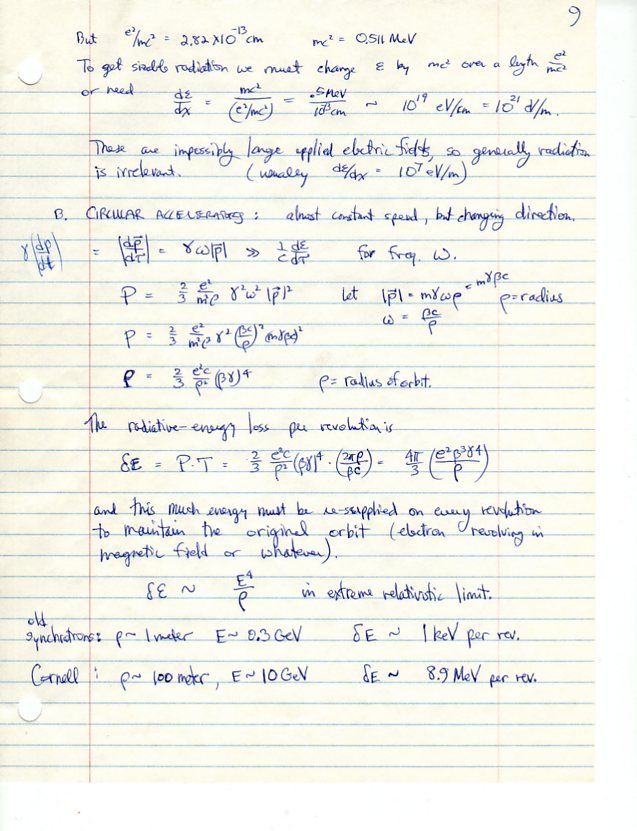 9
But e²/mc² = 2.82 ×10⁻¹³ cm mc² = 0.511 MeV
To get sizable radiation we must change ε by mc² over a length e²/mc²
or need dε/dx = mc²/(e²/mc²) = .5 MeV/10⁻¹³cm ~ 10¹⁹ eV/cm = 10²¹ eV/m.
These are impossibly large applied electric fields, so generally radiation
is irrelevant. (usually dε/dx = 10⁷ eV/m)
B. CIRCULAR ACCELERATORS: almost constant speed, but changing direction.
γ|dp⃗/dt| = |dp⃗/dτ| = γω|p⃗| ≫ 1/c dε/dτ for freq. ω.
P = 2/3 e²/m²c³ γ²ω² |p⃗|² let |p⃗| = mγωρ = mγβc ρ=radius
ω = βc/ρ
P = 2/3 e²/m²c³ γ² (βc/ρ)² (mγβc)²
P = 2/3 e²c/ρ² (βγ)⁴ ρ = radius of orbit.
The radiative-energy loss per revolution is
δE = P·T = 2/3 e²c/ρ² (βγ)⁴ · (2πρ/βc) = 4π/3 (e²β³γ⁴/ρ)
and this much energy must be re-supplied on every revolution
to maintain the original orbit (electron revolving in
magnetic field or whatever).
δE ~ E⁴/ρ in extreme relativistic limit.
old
synchrotrons: ρ ~ 1 meter E ~ 0.3 GeV δE ~ 1 keV per rev.
Cornell: ρ ~ 100 meter, E ~ 10 GeV δE ~ 8.9 MeV per rev.